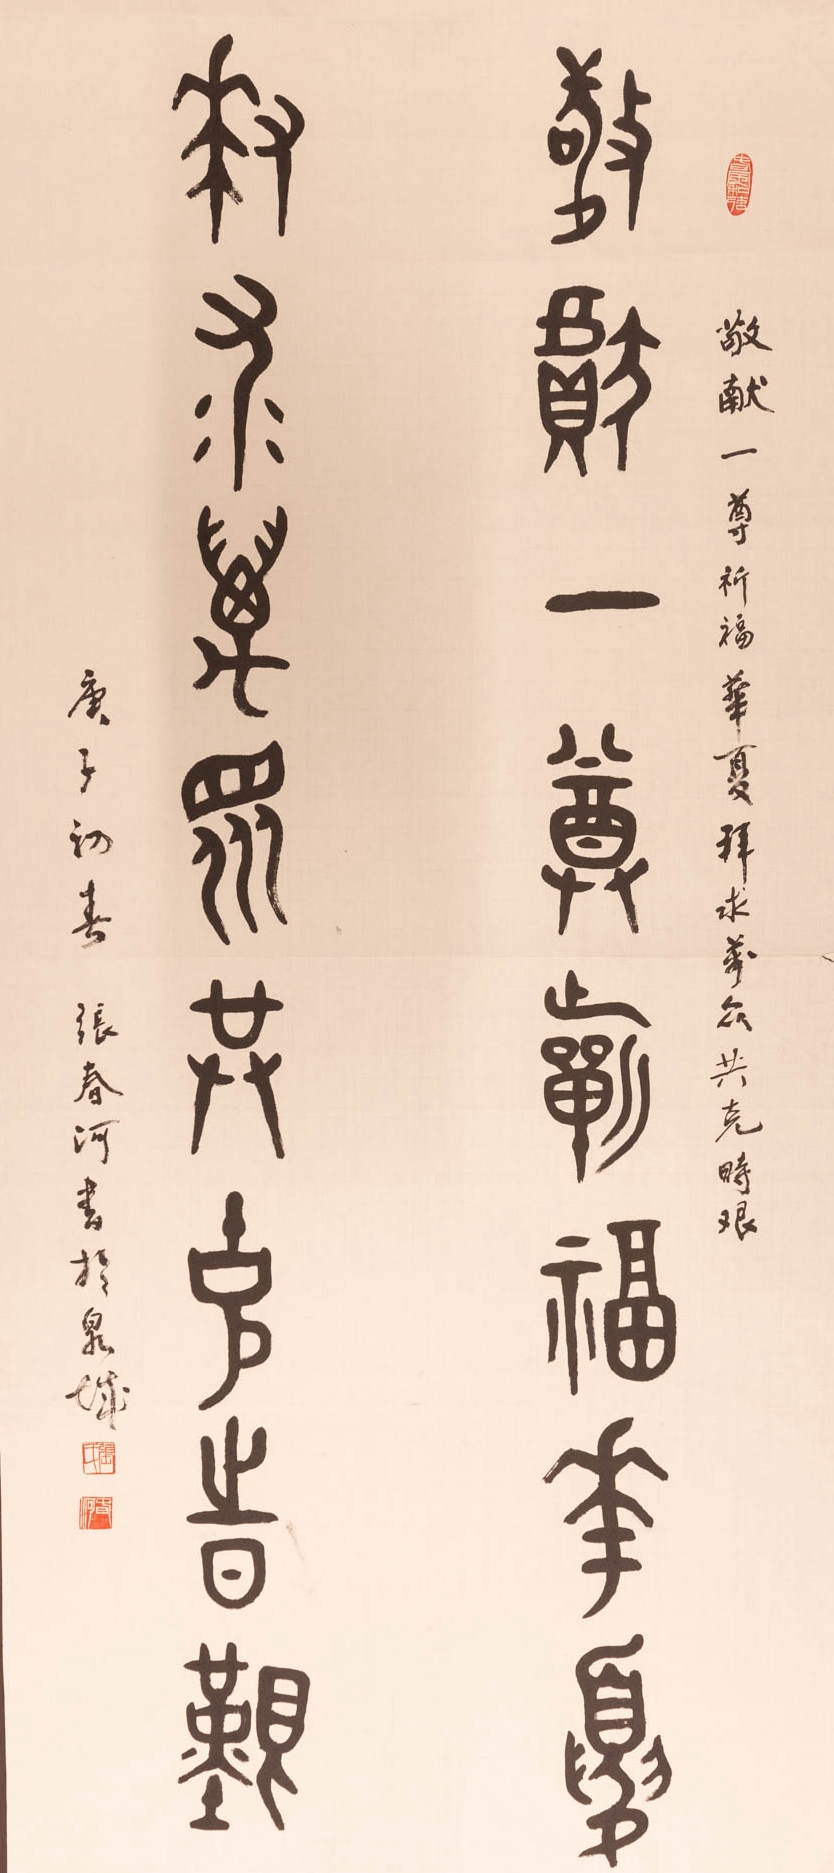 敬獻一尊祈福華夏
敬献一尊祈福華夏拜求萬众共克時艰
拜求萬眾共克時艱
庚子初春 張春河書於泉城